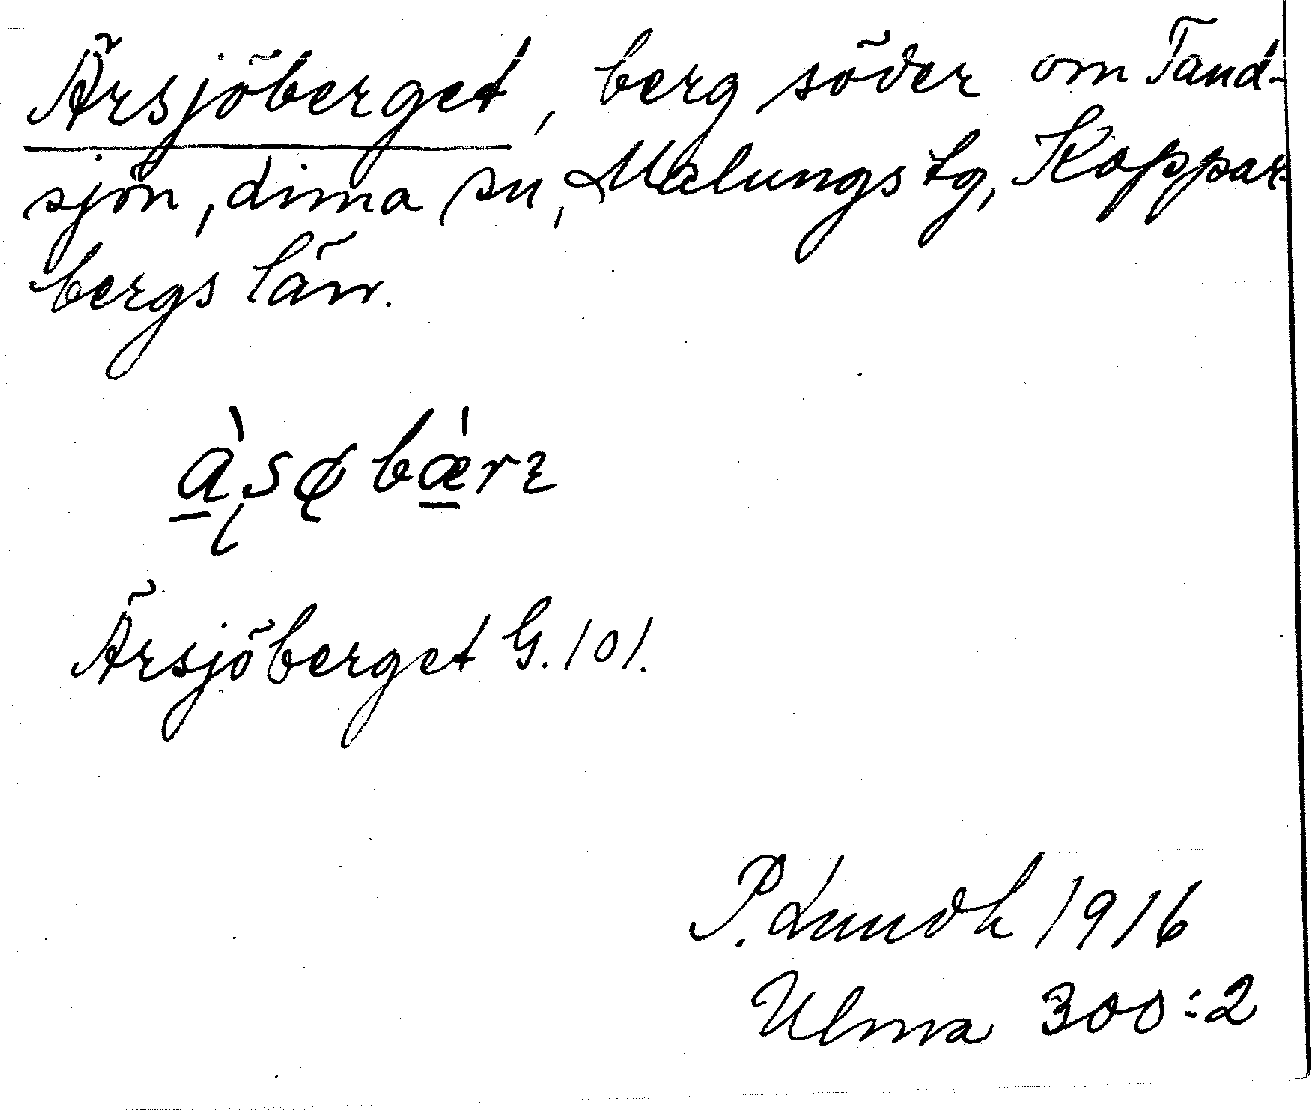 Ärsjöberget, berg söder om Tand-
sjön, Lima sn, Malungs tg, Koppar-
bergs län.
Ärsjöberget G. 101.
P. Lundh 1916
Ulma 300:2